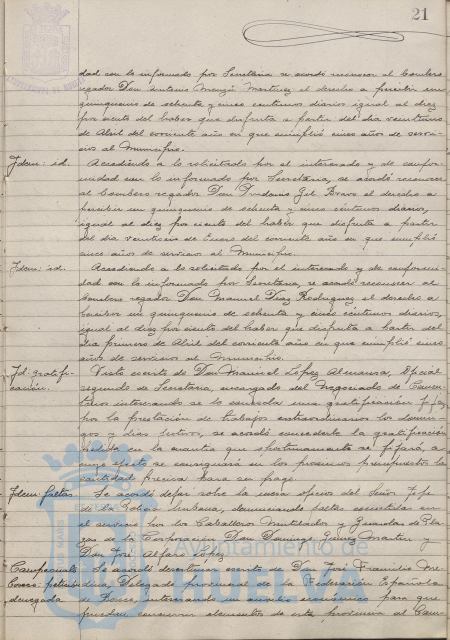 21
dad con lo informado por Secretaría se acordó reconocer al bombero
regador Don Antonio Martínez el derecho a percibir un
quinquenio de ochenta y cinco céntimos diarios igual al diez
por ciento del haber que disfruta a partir del día veintiuno
de Abril del corriente año en que cumplió cinco años de servi-
cios al Municipio.
Idem: id. Accediendo a lo solicitado por el interesado y de confor-
midad con lo informado por Secretaría, se acordó reconocer
al bombero regador Don Gil Bravo el derecho a
percibir un quinquenio de ochenta y cinco céntimos diarios,
igual al diez por ciento del haber que disfruta a partir
del día veinticinco de Enero del corriente año en que cumplió
cinco años de servicios al Municipio.
Idem: id. Accediendo a lo solicitado por el interesado y de conformi-
dad con lo informado por Secretaría, se acordó reconocer al
bombero regador Don Manuel Diaz Rodriguez el derecho a
percibir un quinquenio de ochenta y cinco céntimos diarios,
igual al diez por ciento del haber que disfruta a partir del
día primero de Abril del corriente año en que cumplió cinco
años de servicios al Municipio.
Id: gratifi- Visto escrito de Don Manuel López Almansa, Oficial
cación. segundo de Secretaría, encargado del Negociado de
interesando se le conceda una gratificación fija
por la prestación de trabajos extraordinarios los domin-
gos y días festivos, se acordó concederle la gratificación
pedida en la cuantía que oportunamente se fijará, a
cuyo efecto se consignará en los próximos presupuestos la
cantidad precisa para su pago.
Idem: faltas Se acordó dejar sobre la mesa oficios del Señor Jefe
de la Policía Urbana, denunciando faltas cometidas en
el servicio por los Caballeros Mutilados y Guardas de Pla-
zas de la Corporación Don Domingo Gómez Martín y
Don José Alfaro López.
Campeonato Se acordó desestimar escrito de Don José Francisco
Boxeo: petición Delegado provincial de la Federación Española
denegada de Boxeo, interesando un auxilio económico para que
puedan concurrir elementos de esta provincia al Cam-
Ayuntamiento de
HUELVA